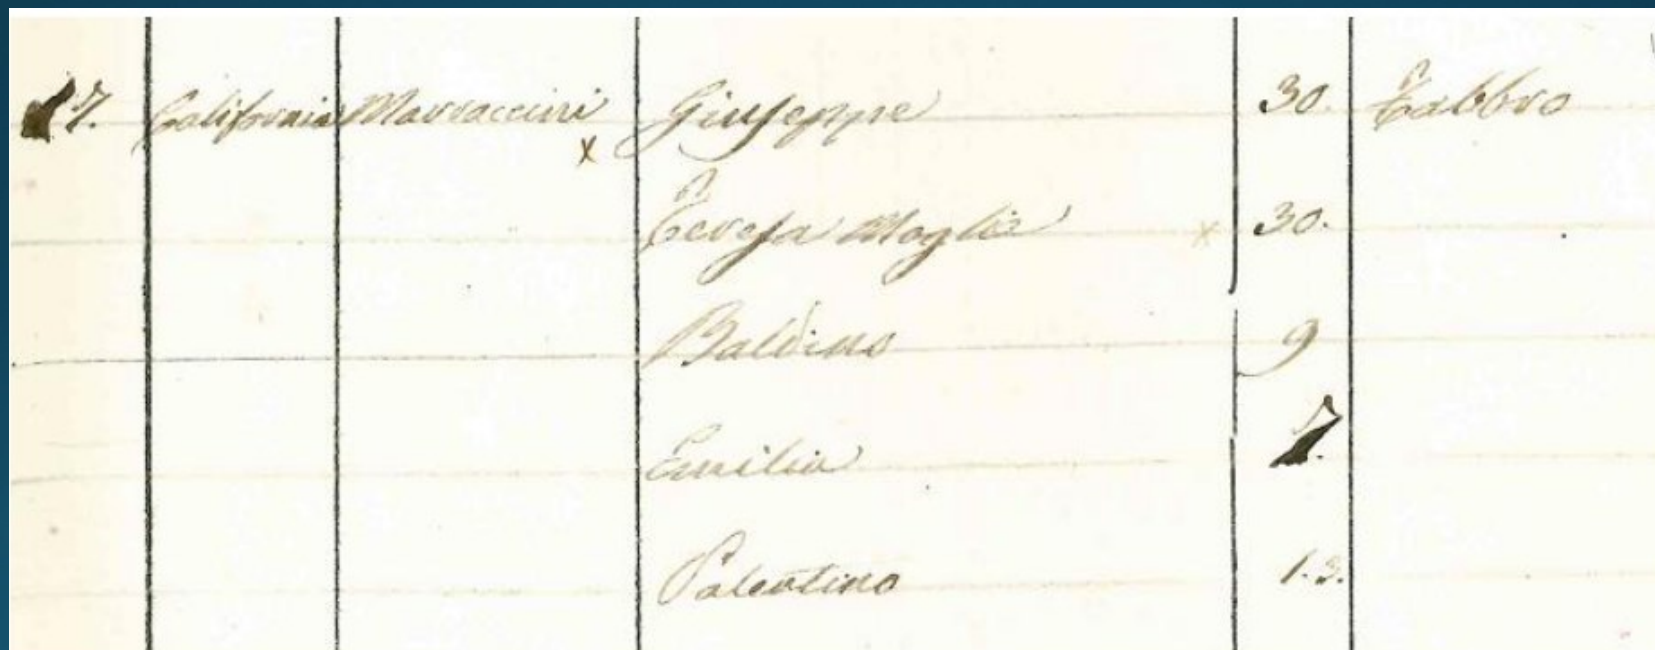 17. California Marraccini Giuseppe 30. Fabbro
x
Teresa Moglie x 30.
Baldino 9
Emilia 7.
Valentino 1.3.